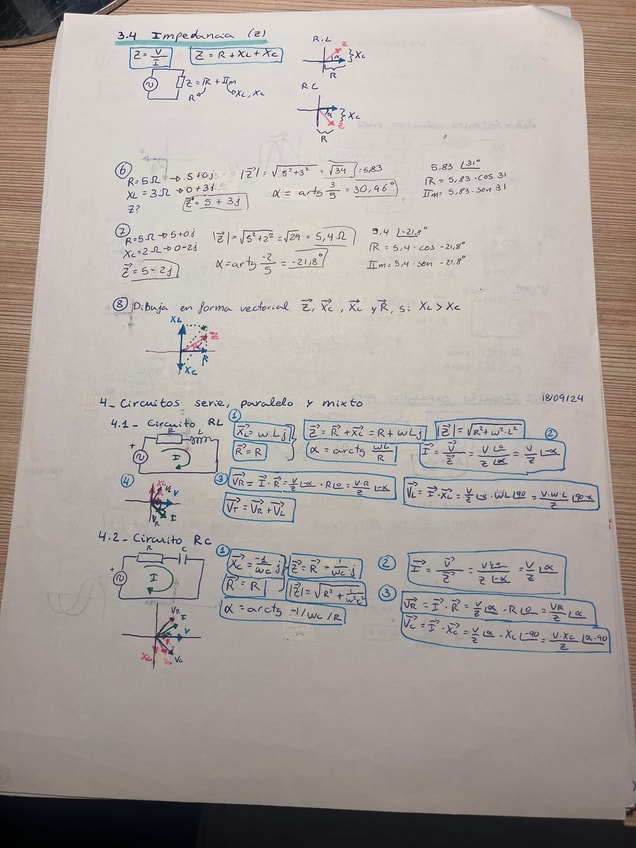 3.4 Impedancia (z)
Z = V/I
Z = R + XL + XC
R.L
Z
α
}XL
R
Z = R + IIm
R
XL, XC
RC
}XC
Z
R
⑥
R = 5Ω → 5+0j
XL = 3Ω → 0+3j
Z?
Z⃗ = 5 + 3j
|Z⃗| = √5²+3² = √34 = 5,83
α = arctg 3/5 = 30,96°
5,83 ∠31°
IR = 5,83 · cos 31
IIm = 5,83 · sen 31
⑦
R = 5Ω → 5+0j
XC = 2Ω → 0-2j
Z⃗ = 5 - 2j
|Z⃗| = √5²+2² = √29 = 5,4 Ω
α = arctg -2/5 = -21,8°
9,4 ∠-21,8°
IR = 5,4 · cos -21,8°
IIm = 5,4 · sen -21,8°
⑧ Dibuja en forma vectorial Z⃗, X⃗C, X⃗L y R⃗, si XL > XC
XL
Z
R
XC
4_ Circuitos serie, paralelo y mixto
18/09/24
4.1 - Circuito RL
R
L
I
①
X⃗L = ωLj
R⃗ = R
Z⃗ = R⃗ + X⃗L = R + ωLj
α = arctg ωL/R
|Z⃗| = √R² + ω²·L²
②
I⃗ = V⃗/Z⃗ = V∠0/Z∠α = V/Z ∠-α
③
V⃗R = I⃗ · R⃗ = V/Z ∠-α · R∠0 = V·R/Z ∠-α
V⃗T = V⃗R + V⃗L
V⃗L = I⃗ · X⃗L = V/Z ∠-α · ωL∠90 = V·ω·L/Z ∠90-α
④
XL
VL
V
VR
I
4.2 - Circuito RC
R
C
I
①
X⃗C = -1/ωC j
R⃗ = R
Z⃗ = R⃗ - 1/ωC j
|Z⃗| = √R² + 1/ω²C²
α = arctg -1/ωC/R
②
I⃗ = V⃗/Z⃗ = V∠0/Z∠-α = V/Z ∠α
③
V⃗R = I⃗ · R⃗ = V/Z ∠α · R∠0 = VR/Z ∠α
V⃗C = I⃗ · X⃗C = V/Z ∠α · XC∠-90 = V·XC/Z ∠α-90
VR
I
V
XC
VC